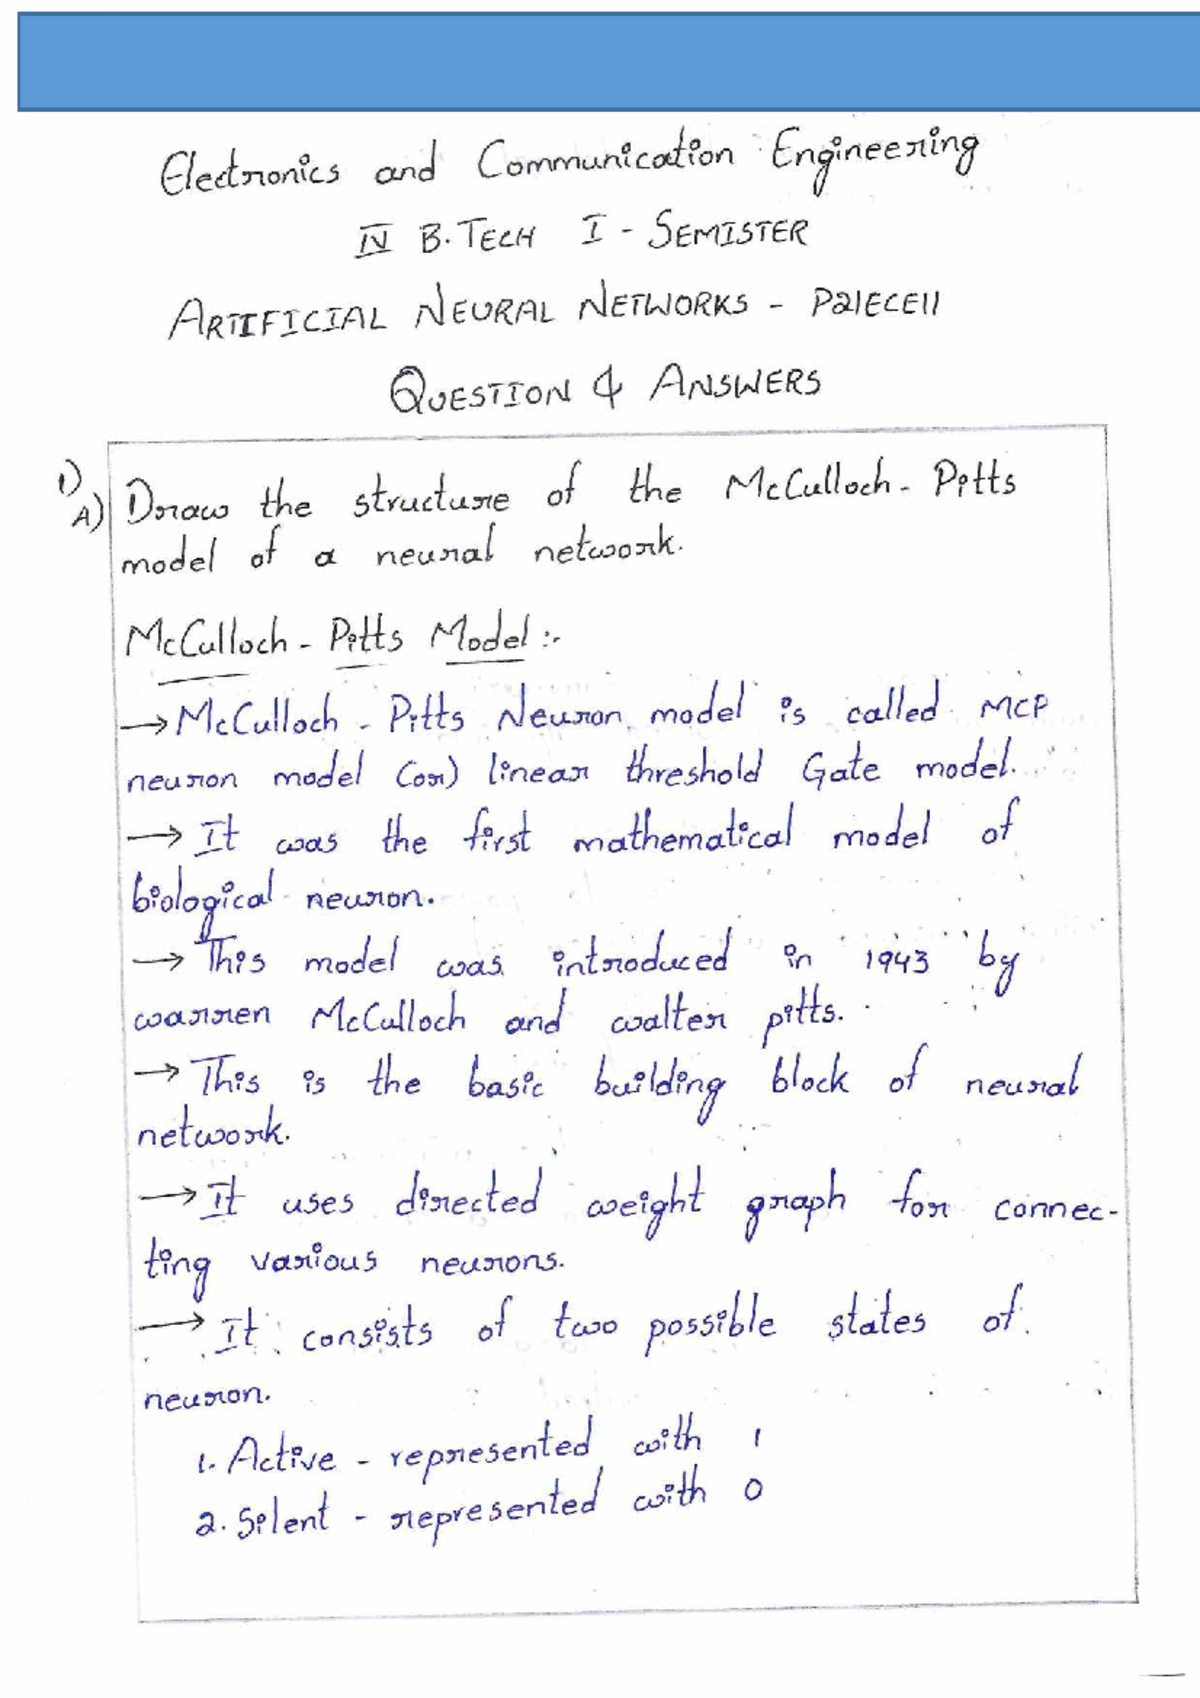 Electronics and Communication Engineering
IV B.TECH I - SEMISTER
ARTIFICIAL NEURAL NETWORKS - P21ECE11
QUESTION & ANSWERS
1)
A) Draw the structure of the McCulloch - Pitts
model of a neural network.
McCulloch - Pitts Model :-
→ McCulloch - Pitts Neuron model is called MCP
neuron model (or) linear threshold Gate model.
→ It was the first mathematical model of
biological neuron.
→ This model was introduced in 1943 by
warren McCulloch and walter pitts.
→ This is the basic building block of neural
network.
→ It uses directed weight graph for connec-
ting various neurons.
→ It consists of two possible states of
neuron.
1. Active - represented with 1
2. Silent - represented with 0